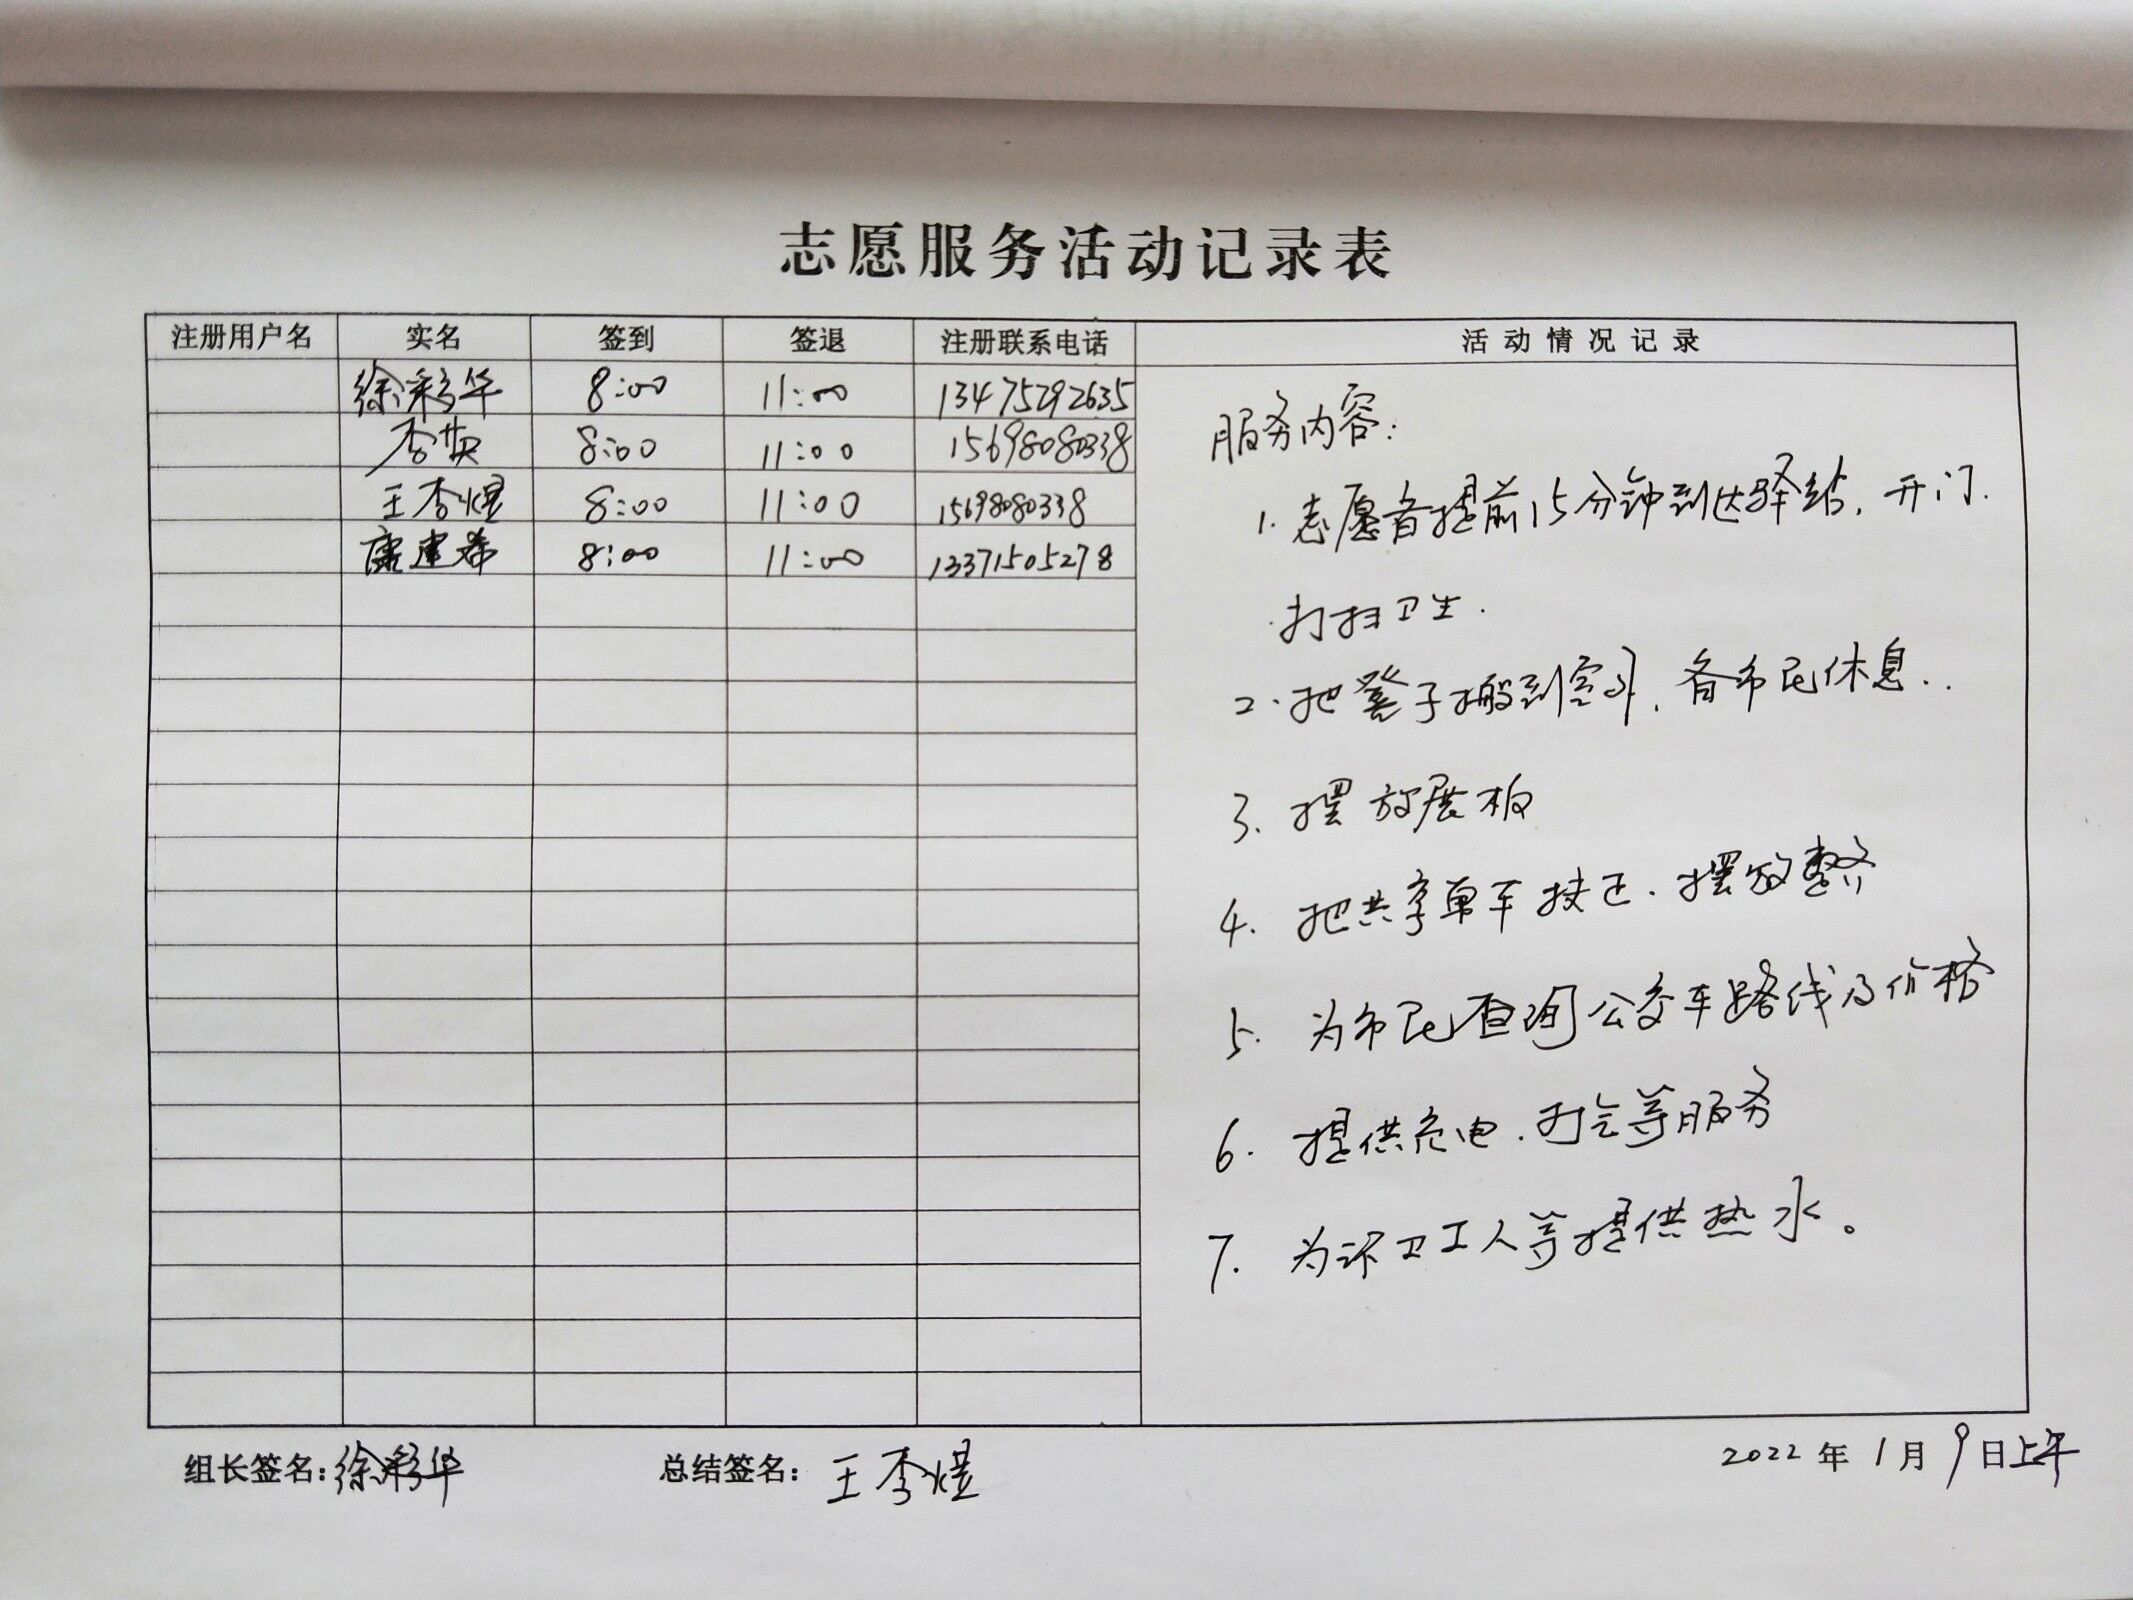 志愿服务活动记录表
注册用户名 实名 签到 签退 注册联系电话 活动情况记录
徐彩华 8:00 11:00 13475292635
李英 8:00 11:00 15698080338
王李煜 8:00 11:00 15698080338
康建 8:00 11:00 13371505278
服务内容:
1. 志愿者提前15分钟到达驿站，开门.
打扫卫生.
2. 把凳子搬到室外，备市民休息..
3. 摆放展板
4. 把共享单车扶正.摆放整齐
5. 为市民查询公交车路线及价格
6. 提供充电.打气等服务
7. 为环卫工人等提供热水。
组长签名:徐彩华 总结签名: 王李煜 2022年1月9日上午